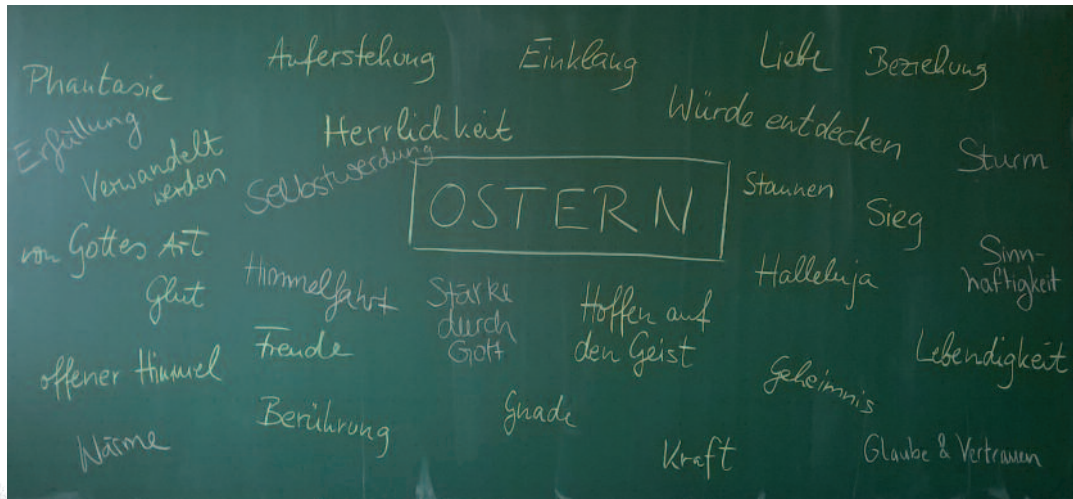 Auferstehung
Einklang
Liebe
Beziehung
Phantasie
Herrlichkeit
Würde entdecken
Erfüllung
Verwandelt
werden
Selbstwerdung
OSTERN
Staunen
Sturm
Sieg
von Gottes Art
Glut
Himmelfahrt
Stärke
durch
Gott
Hoffen auf
den Geist
Halleluja
Sinn-
haftigkeit
offener Himmel
Freude
Geheimnis
Lebendigkeit
Wärme
Berührung
Gnade
Kraft
Glaube & Vertrauen